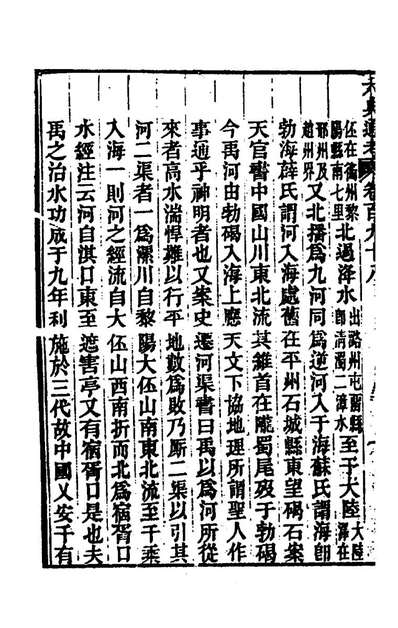 六典通考 卷百九十八
伾在衞州黎陽縣南七里北過洚水出潞州屯留縣即清濁二漳水至于大陸大陸澤在
邢州及趙州界又北播為九河同為逆河入于海蘇氏謂海即
勃海薛氏謂河入海處舊在平州石城縣東望碣石案
天官書中國山川東北流其維首在隴蜀尾歿于勃碣
今禹河由勃碣入海上應天文下協地理所謂聖人作
事通乎神明者也又案史遷河渠書曰禹以為河所從
來者高水湍悍難以行平地數為敗乃廝二渠以引其
河二渠者一為漯川自黎陽大伾山南東北流至千乘
入海一則河之經流自大伾山西南折而北為宿胥口
水經注云河自淇口東至遮害亭又有宿胥口是也夫
禹之治水功成于九年利施於三代故中國乂安千有